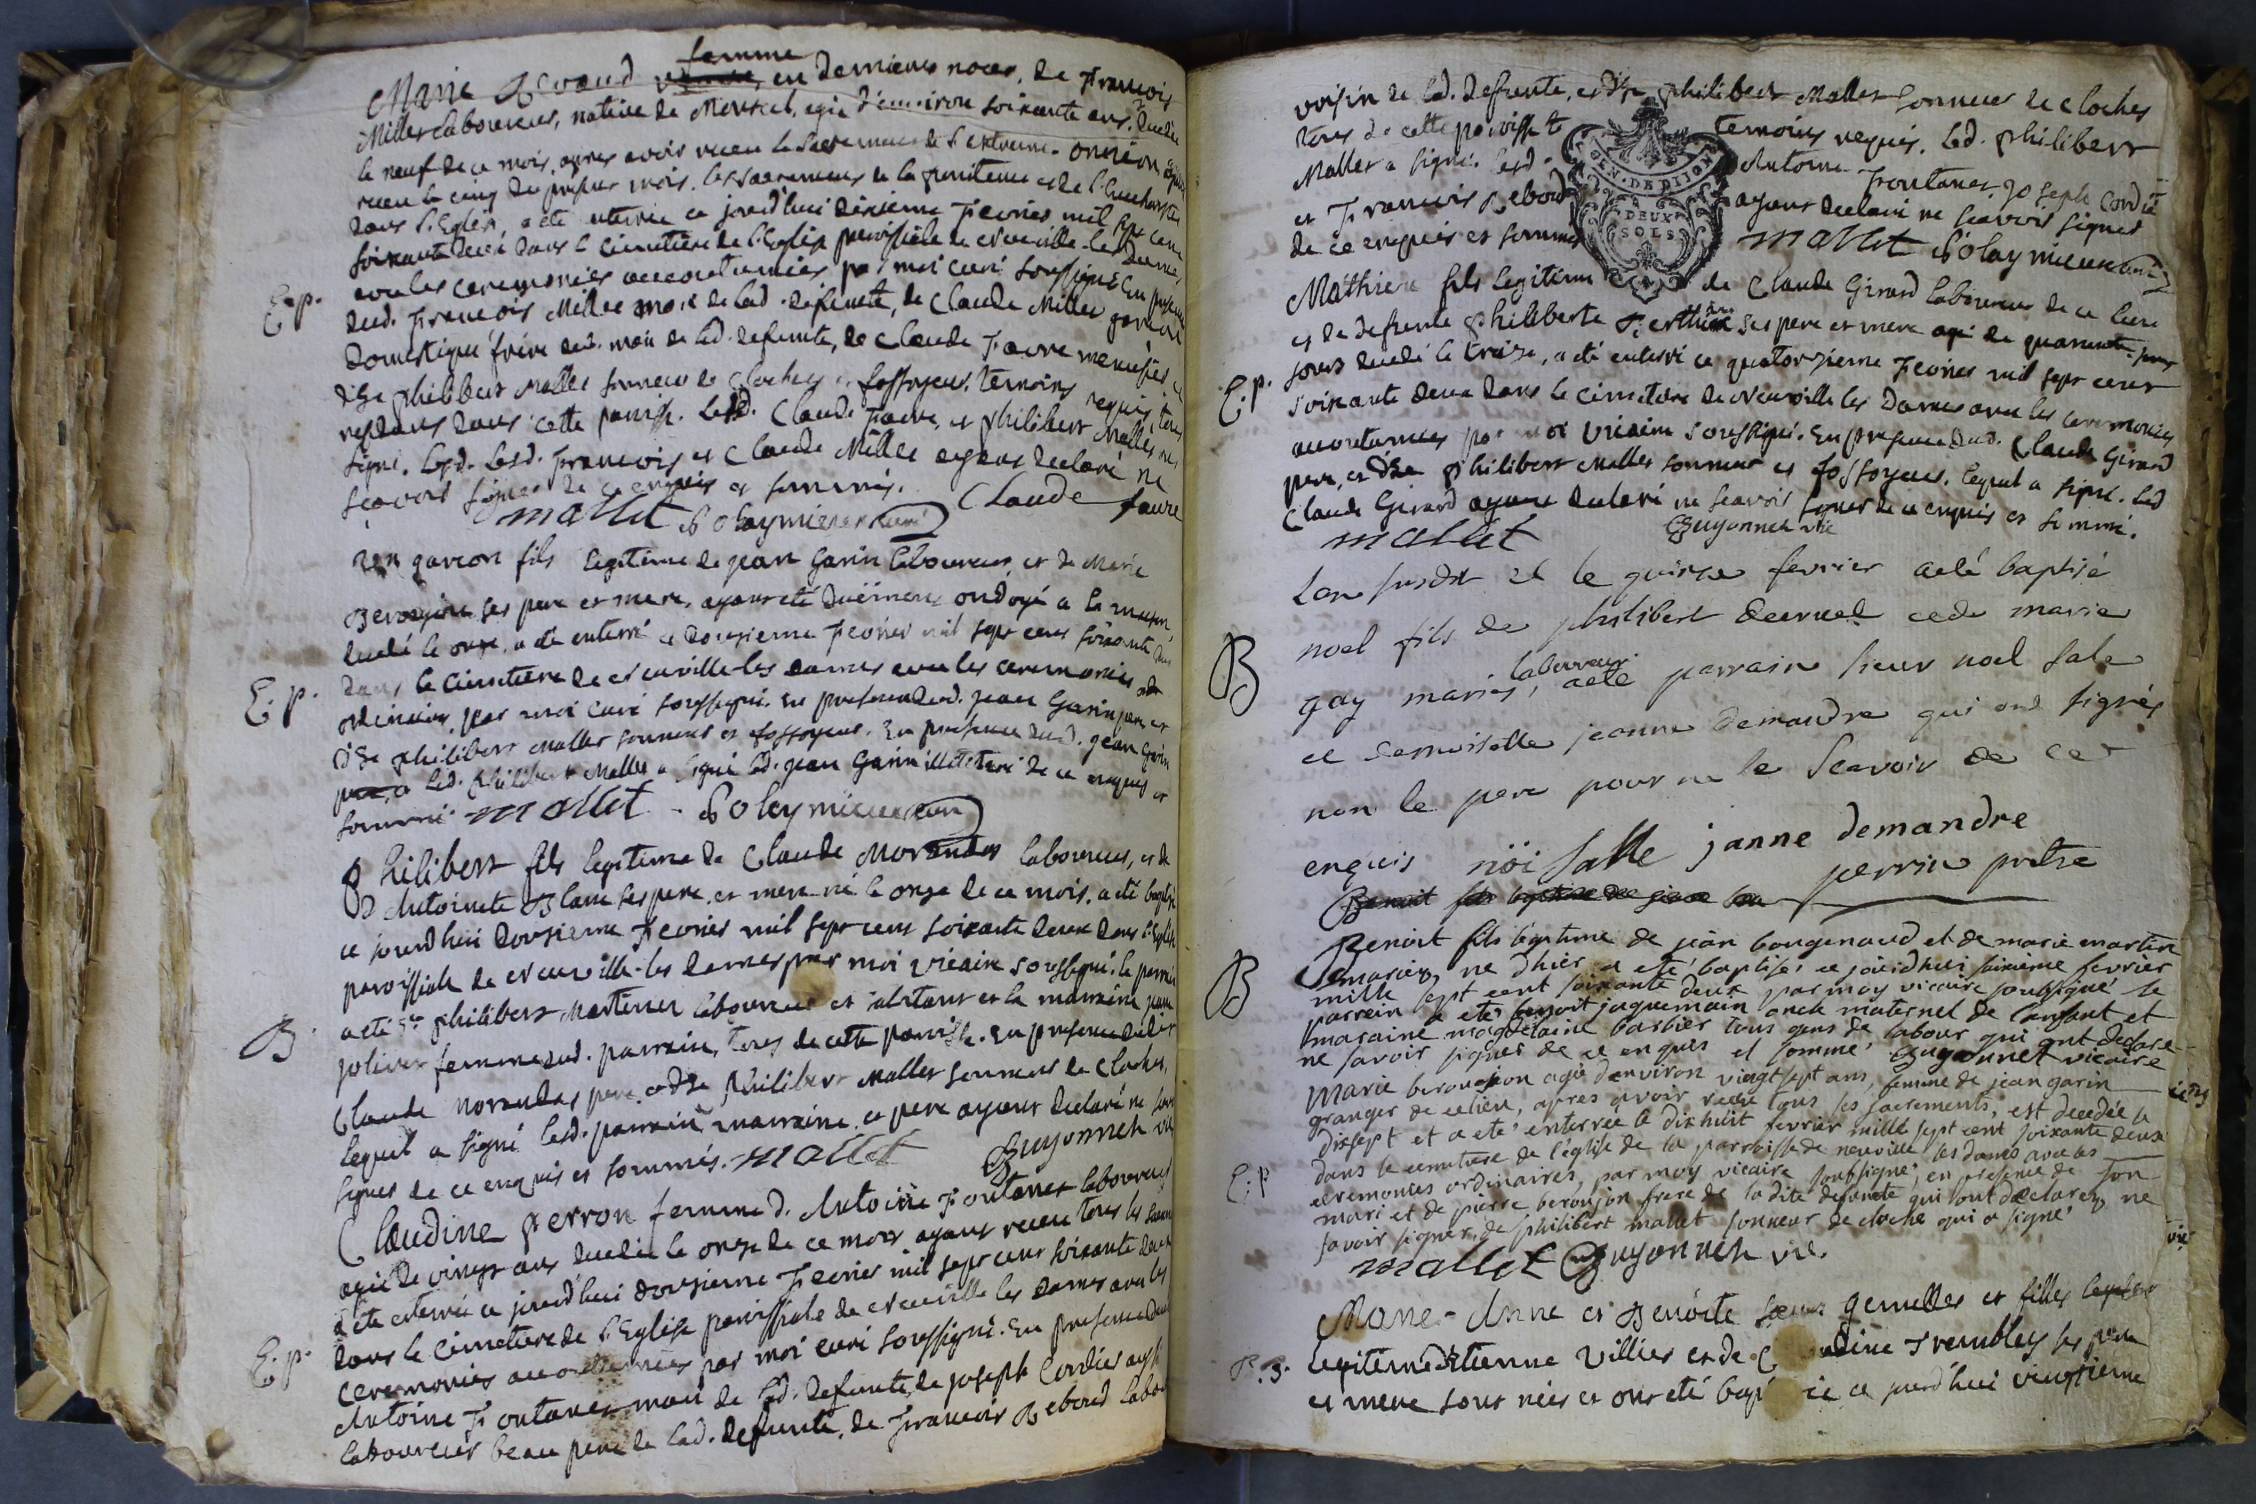 Marie Revaud femme en dernieres noces, de Francois
Millet laboureur, native de Monrad, agée d'environ soixante ans, decedée
le neuf de ce mois, apres avoir receu le Sacrement de l'extreme-onction
receu le cinq du present mois, les sacremens de la penitence et de l'Eucharistie
dans l'Eglise, a été enterrée ce jourd'hui dixieme Fevrier mil sept cent
soixante deux dans le cimetiere de l'Eglise paroissiale de Neuville-les Dames
avec les ceremonies accoutumées par moi curé soussigné En presence
E. p.
dud. Francois Millet mari de lad. defunte, de Claude Millet garcon
Domestique frere dud. mari de lad. defunte, de Claude Favre menusier, et
d'Sr philibert Mallet sonneur de cloches et fossoyeur, temoins requis, tous
residans dans cette paroisse. Lesd. Claude Favre, et philibert Mallet ont
signé. Lesd. Francois et Claude Millet ayant declaré ne
scavoir signer de ce enquis et sommés.
mallet Polaymieux curé Claude favre
Un garcon fils legitime de jean Garin laboureur, et de Marie
Beroujon ses pere et mere, ayant été duëment ondoyé a la maison,
decedé le onze, a été enterré ce douzieme Fevrier mil sept cens soixante deux
E. p.
dans le cimetiere de Neuville-les Dames avec les ceremonies
ordinaires, par moi curé soussigné. En presence dud. jean Garin pere et
d'Sr philibert Mallet sonneur et fossoyeur. En presence dud. jean Garin
Led. philibert Mallet a signé led. jean Garin illitteré de ce enquis et
sommé mallet Polaymieux curé
Philibert fils legitime de Claude Morandas laboureur, et de
Antoinete Blanc ses pere, et mere né le onze de ce mois, a été baptisé
ce jourd'hui douzieme Fevrier mil sept cens soixante deux dans l'Eglise
paroissiale de Neuville-les Dames par moi vicaire soussigné. le parrain
a été Sr philibert Martinet laboureur et habitant et la marraine
B
jolivet femme dud. parrain, tous de cette paroisse. En presence dudit
Claude Morandas pere, et d'Sr philibert Mallet sonneur de cloches,
lequel a signé lesd. parrain, marraine, et pere ayant declaré ne scavoir
signer de ce enquis et sommés. mallet Guyonnet vic
Claudine perron femme d'Antoine Fontanet laboureur
agée de vingt ans decedée le onze de ce mois ayant receu tous les sacrem
a été enterrée ce jourd'hui douzieme Fevrier mil sept cent soixante deux
E. p.
dans le cimetiere de l'Eglise paroissiale de Neuville les Dames avec les
ceremonies accoutumées par moi curé soussigné. En presence dud
Antoine Fontanet mari de lad. defunte, de joseph Cordier aussi
laboureur beau pere de lad. defunte, de Francois Rebourd labou
voisin de lad. defunte, et d'Sr philibert Mallet sonneur de cloches
tous de cette paroisse temoins requis. Led. philibert
Mallet a signé. Lesd. Antoine Fontanet joseph Cordier
et Francois Rebourd ayant declaré ne scavoir signer
de ce enquis et sommés mallet Polaymieux curé
GEN. DE DIJON
DEUX
SOLS
Mathieu fils legitime de Claude Girard laboureur de ce lieu
et de defunte philiberte ses pere et mere agé de quarante
jours decedé le treize, a été enterré ce quatorzieme Fevrier mil sept cent
E. p.
soixante deux dans le cimetiere de Neuville les Dames avec les ceremonies
accoutumées par moi vicaire soussigné. En presence dud. Claude Girard
pere, et d'Sr philibert Mallet sonneur et fossoyeur, lequel a signé. Led
Claude Girard ayant declaré ne scavoir signer de ce enquis et sommé.
mallet Guyonnet vic
Lan susdit et le quinze fevrier a eté baptisé
noel fils de philibert et de marie
B
gay mariés, laboureur a eté parrain sieur noel sale
et demoiselle jeanne demandre qui ont signés
non le pere pour ne le scavoir de ce
enquis nöi salle janne demandre
perrin pretre
Benoit fils legitime de
Benoit fils legitime de jean bougenaud et de marie martin
B
mariez, ne d'hier a eté baptisé ce jourdhui seisieme fevrier
mille sept cent soixante deux par moy vicaire soubsigné le
parrein a eté benoit jaquemain oncle maternel de l'enfant et
maraine magdelaine barbier tous gens de labour qui ont declaré
ne savoir signer de ce enquis et sommé Guyonnet vicaire
Marie beroujon agée d'environ vingt sept ans, femme de jean garin
granger de ce lieu, apres avoir receu tous les sacrements, est decedée le
dixsept et a eté enterrée le dix huit fevrier mille sept cent soixante deux
E. p
dans le cemetiere de l'église de la parroisse de neuville les dames avec les
ceremonies ordinaires, par moy vicaire soubsigné, en presence de son
mari et de pierre beroujon frere de la dite defunte qui ont declarez ne
savoir signer, de philibert mallet sonneur de cloche qui a signé
mallet Guyonnet vic.
Marie-Anne et Benoite soeurs gemelles et filles
B. B.
legitimes d'Etienne Villier et de Trembley ses pere
et mere sont nées et ont eté ce jourd'hui vingtieme